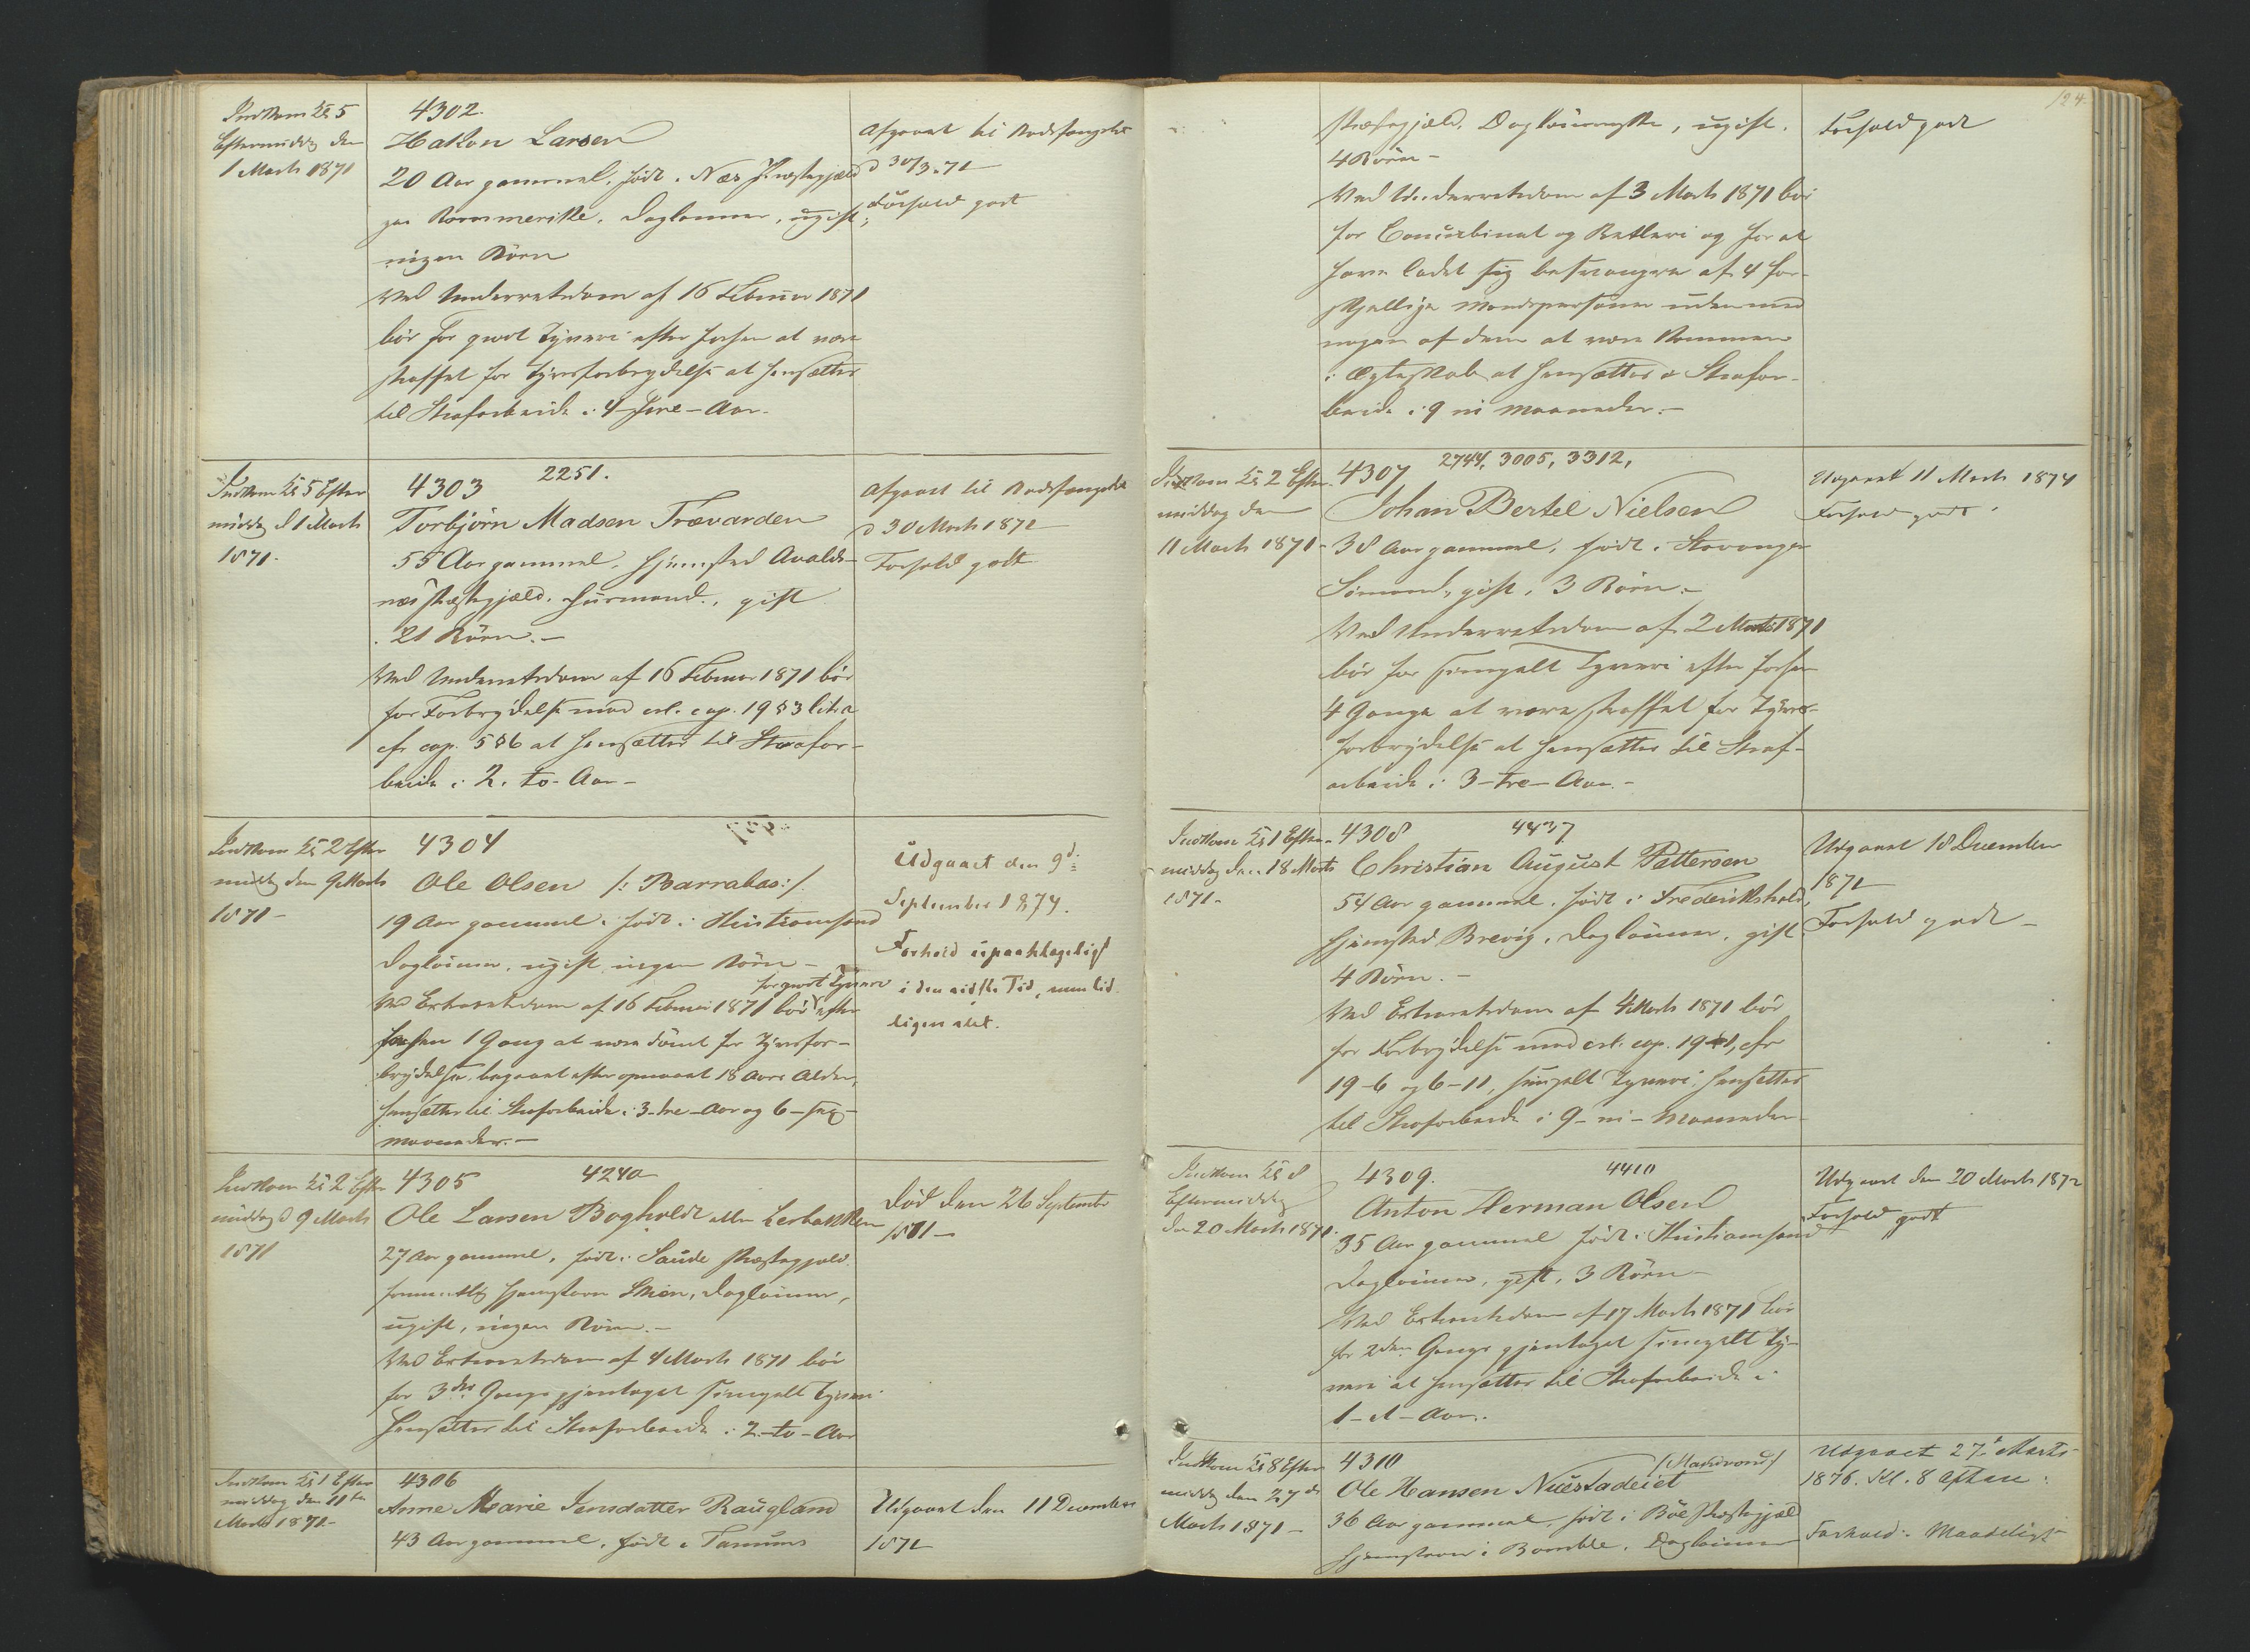 Indkom Kl 5
Eftermiddag den
1 Marts 1871
4302.
Hakon Larsen
20 Aar gammel, født i Næs Præstegjæld
paa Rommerike, Daglønner, ugift,
ingen Börn
Ved Underretsdom af 16 Februar 1871
bör for grovt Tyveri efter forhen at være
straffet for Tyvsforbrydelse at hensættes
til Strafarbeide i 4 - fire - Aar.
Afgaaet til Bodsfængslet
d 30/3.71
Forhold godt
Indkom Kl 5 Efter
middag d 1 Marts
1871.
4303 2251.
Torbjörn Madsen Trævarden
55 Aar gammel, Hjemsted Avalds-
næs Præstegjæld, Huusmand, gift
21 Börn. -
Ved Underretsdom af 16 Februar 1871 bör
for Forbrydelse mod crl. cap. 19 § 3 litra
cfr cap. 5 § 6 at hensættes til Strafar-
beide i 2. to - Aar -
Afgaaet til Bodsfængslet
d 30 Marts 1871
Forhold godt
Indkom Kl 2 Efter
middag den 9 Marts
1871 -
4304
Ole Olsen /: Barrabas :/
19 Aar gammel, født i Kristiansand
Daglönner, ugift, ingen Börn -
for grovt Tyveri
Ved Extraretsdom af 16 Februar 1871 bör efter
forhen 1 Gang at være dömt for Tyvsfor-
brydelse, begaaet efter opnaaet 18 Aars Alder,
hensættes til Strafarbeide i 3 - tre - Aar og 6 - sex -
Maaneder. -
Udgaaet den 9d:
September 1874.
Forhold upaaklageligt
i den sidste Tid, men tid-
ligere slet.
Indkom Kl 2 Efter
middag d 9 Marts
1871
4305 4240
Ole Larsen Bogholdt eller Lerbakken
27 Aar gammel, født i Saude Præstegjæld
formentlig Hjemstavn Skien, Daglönner,
ugift, ingen Börn. -
Ved Extraretsdom af 4 Marts 1871 bör
for 3die Gang gjentaget simpelt Tyveri
hensættes til Strafarbeide i 2 - to - Aar
Död den 26 September
1871 -
Indkom Kl 1 Efter
middag den 11te
Marts 1871 -
4306
Anne Marie Jensdatter Raugland
43 Aar gammel, født i Tanums
Udgaaet den 11 December
1871
124.
Præstegjæld, Daglönnerske, ugift,
4 Börn -
Ved Underretsdom af 3 Marts 1871 bör
for Concubinat og Betleri og for at
have ladet sig besvangre af 4 for-
skjellige Mandspersoner uden med
nogen af dem at være kommen
i Ægteskab at hensættes i Strafar-
beide i 9 ni Maaneder. -
Forhold godt
Indkom Kl 2 Efter
middag den
11 Marts 1871 -
4307 2744, 3005, 3312,
Johan Bertel Nielsen
38 Aar gammel, født i Stavanger
Sömand, gift, 3 Börn. -
Ved Underretsdom af 2 Marts 1871
bör for simpelt Tyveri efter forhen
4 Gange at være straffet for Tyvs-
forbrydelse at hensættes til Straf-
arbeide i 3 - tre - Aar. -
Udgaaet 11 Marts 1874
Forhold godt.
Indkom Kl 1 Efter-
middag den 18 Marts
1871 -
4308 4437
Christian August Pettersen
54 Aar gammel, født i Frederikshald,
Hjemsted Brevig, Daglönner, gift
4 Börn. -
Ved Extraretsdom af 4 Marts 1871 bör
for Forbrydelse mod crl. cap. 19 - 1, cfr
19 - 6 og 6 - 11, simpelt Tyveri, hensættes
til Strafarbeide i 9 - ni - Maaneder
Udgaaet 18 December
1871
Forhold godt -
Indkom Kl 8
Eftermiddag
den 20 Marts 1871.
4309. 4410
Anton Herman Olsen
35 Aar gammel født i Kristiansand
Daglönner, gift, 3 Börn -
Ved Extraretsdom af 17 Marts 1871 bör
for 2den Gang gjentaget simpelt Ty-
veri at hensættes til Strafarbeide i
1 - et - Aar.
Udgaaet den 20 Marts 1872
Forhold godt
Indkom Kl 8 Efter
middag den 27de
Marts 1871 -
4310
Ole Hansen Nuestadeiet
36 Aar gammel, født i Böe Præstegjæld
Hjemstavn i Bamble, Daglönner
Udgaaet 27d Marts
1876. Kl. 8 Aften.
Forhold: Maadeligt